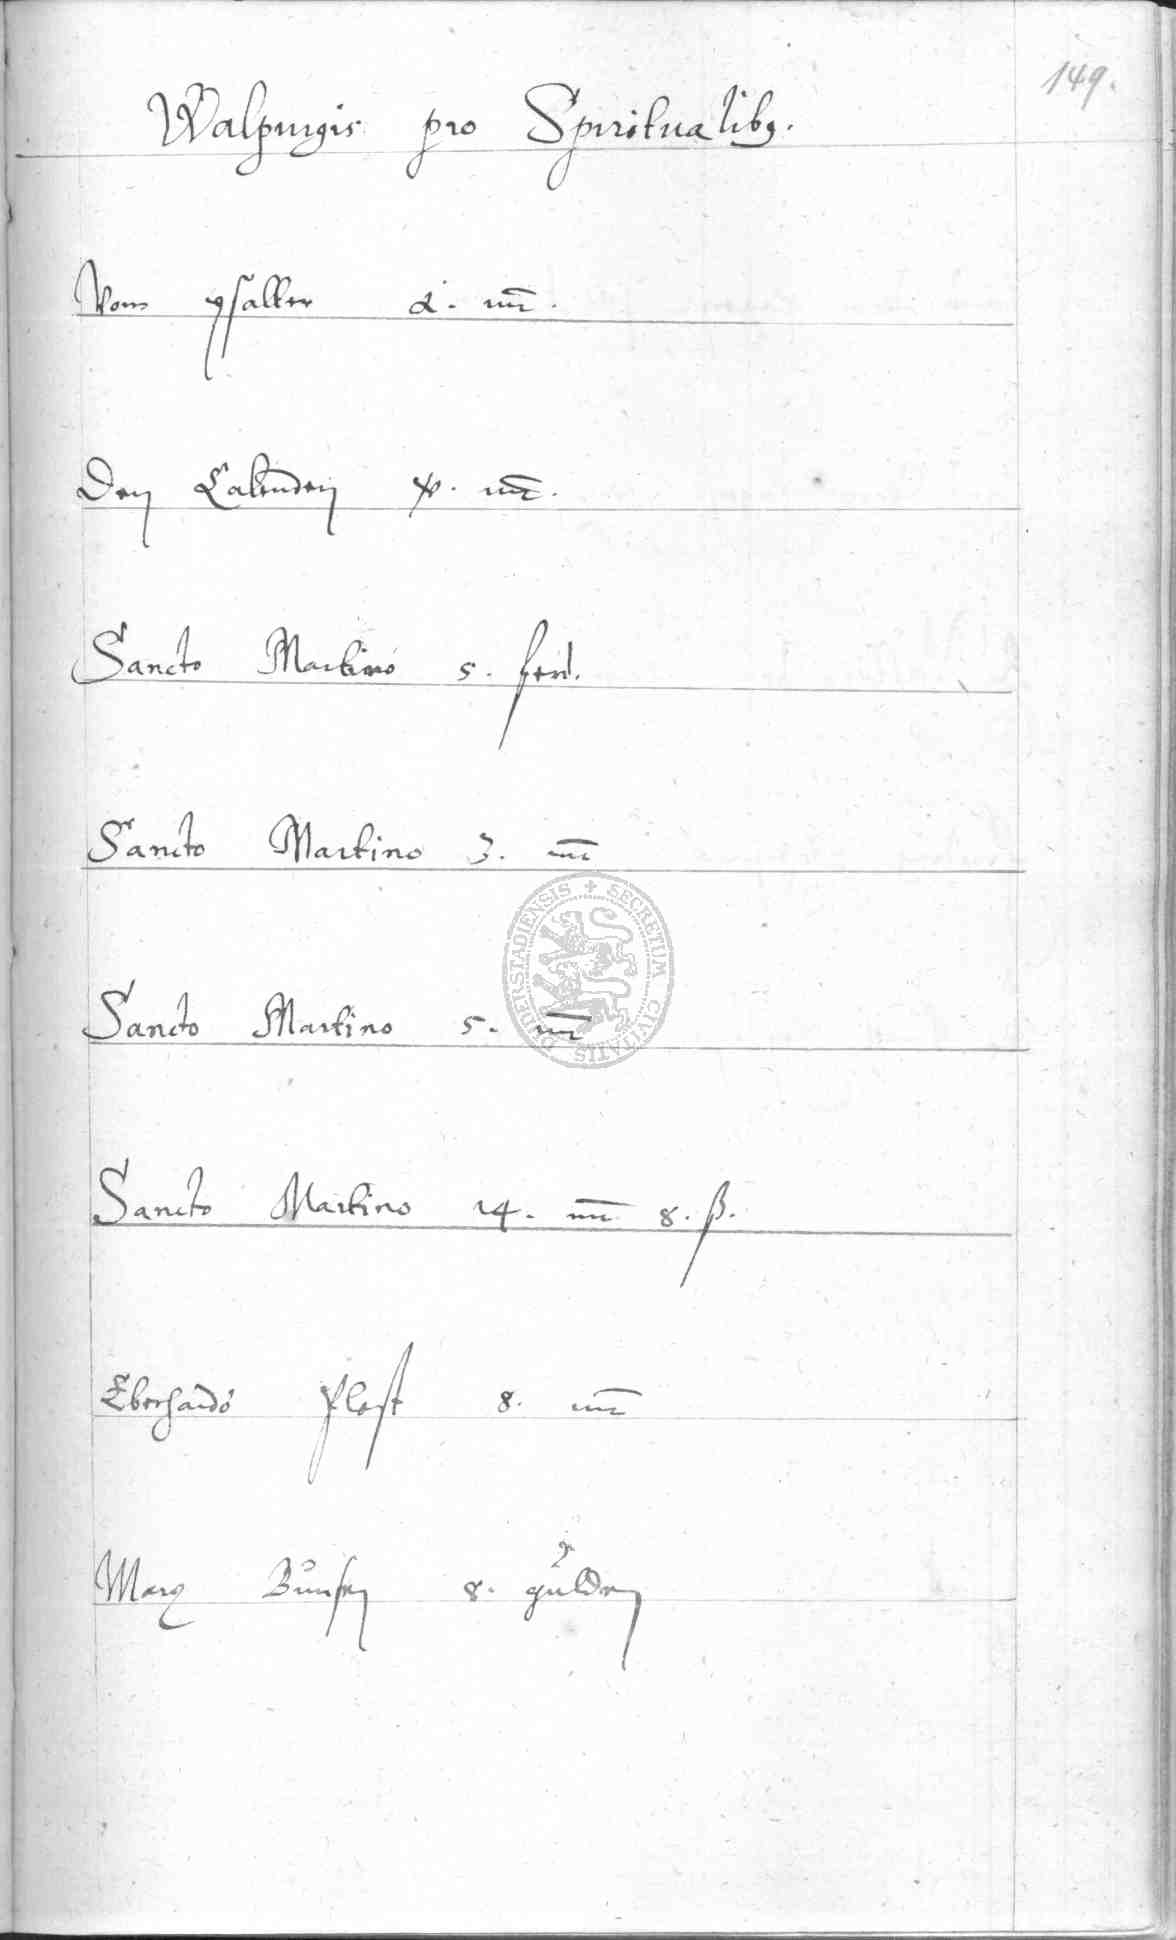 149.
Walpurgis pro Spiritualibꝯ.
Vom psalter 2. mr.
Den Calenden x. mr.
Sancto Martino 5. ferd.
Sancto Martino 3. mr
Sancto Martino 5. mr
Sancto Martino 14. mr 8. ß.
Eberhardo 8. mr
Marx Bunsen 8. gulden
SECRETUM CIVITATIS DUDERSTADIENSIS +